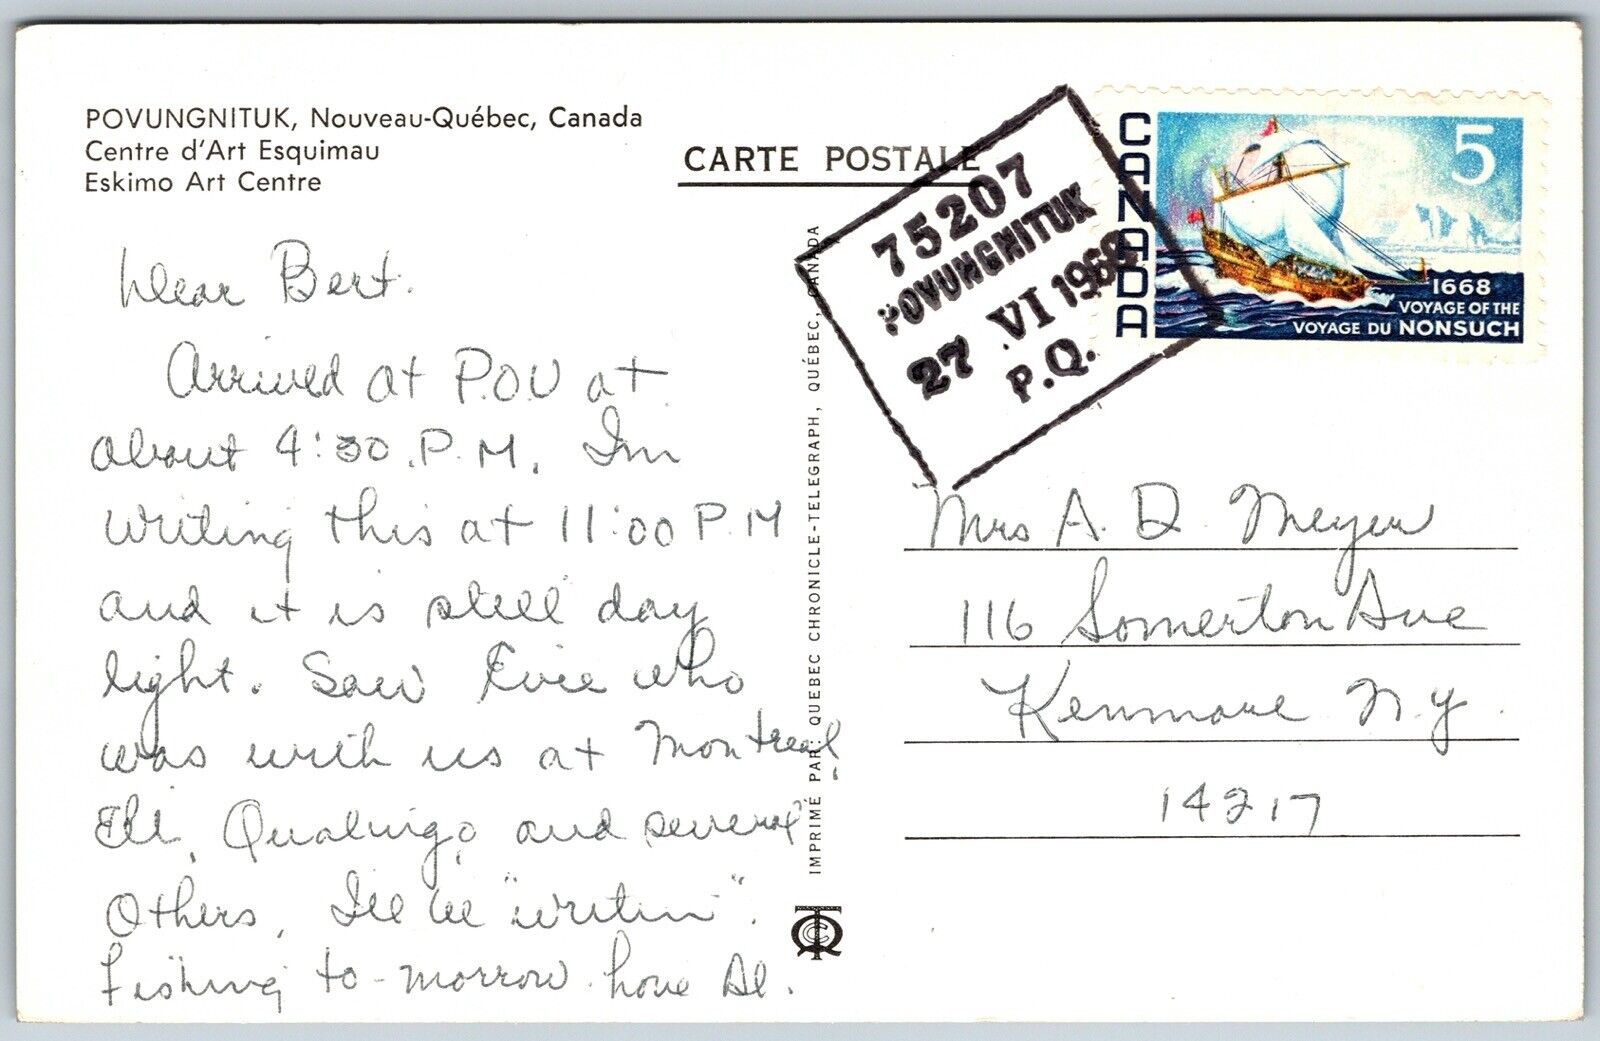 POVUNGNITUK, Nouveau-Québec, Canada
Centre d'Art Esquimau
Eskimo Art Centre
CARTE POSTALE
75207
POVUNGNITUK
27 VI 1968
P.Q.
CANADA
5
1668
VOYAGE OF THE
VOYAGE DU NONSUCH
Dear Bert.
Arrived at P.O.V at
about 4:30 P.M. Im
writing this at 11:00 P.M
and it is still day
light. Saw Evie who
was with us at Montreal,
Eli, and several
Others, Ill be "writin".
Fishing to-morrow. love Al.
IMPRIMÉ PAR: QUEBEC CHRONICLE-TELEGRAPH, QUÉBEC, CANADA
Mrs A. D. Meyer
116 Somerton Ave
Kenmore N.Y.
14217